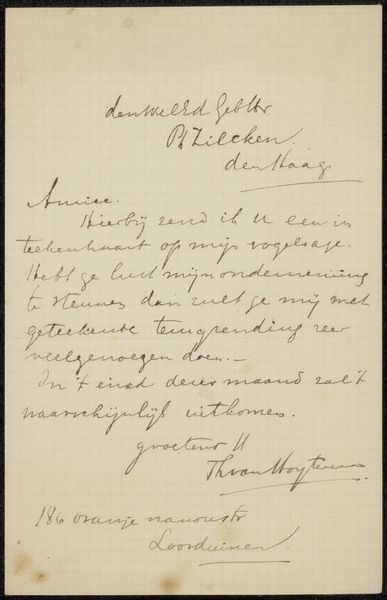 den WelEd Geb Hr
Ph Zilcken.
den Haag
Amice.
Hierbij zend ik U een in
teekenkaart op mijn vogelsage.
Hebt ge lust mijn onderneming
te steunen dan zult ge mij met
geteekende terugzending zeer
veel genoegen doen.—
In 't eind dezer maand zal 't
waarschijnlijk uitkomen.
groetend U
Th van Hoytema
186 oranje nassaustr
Loosduinen.